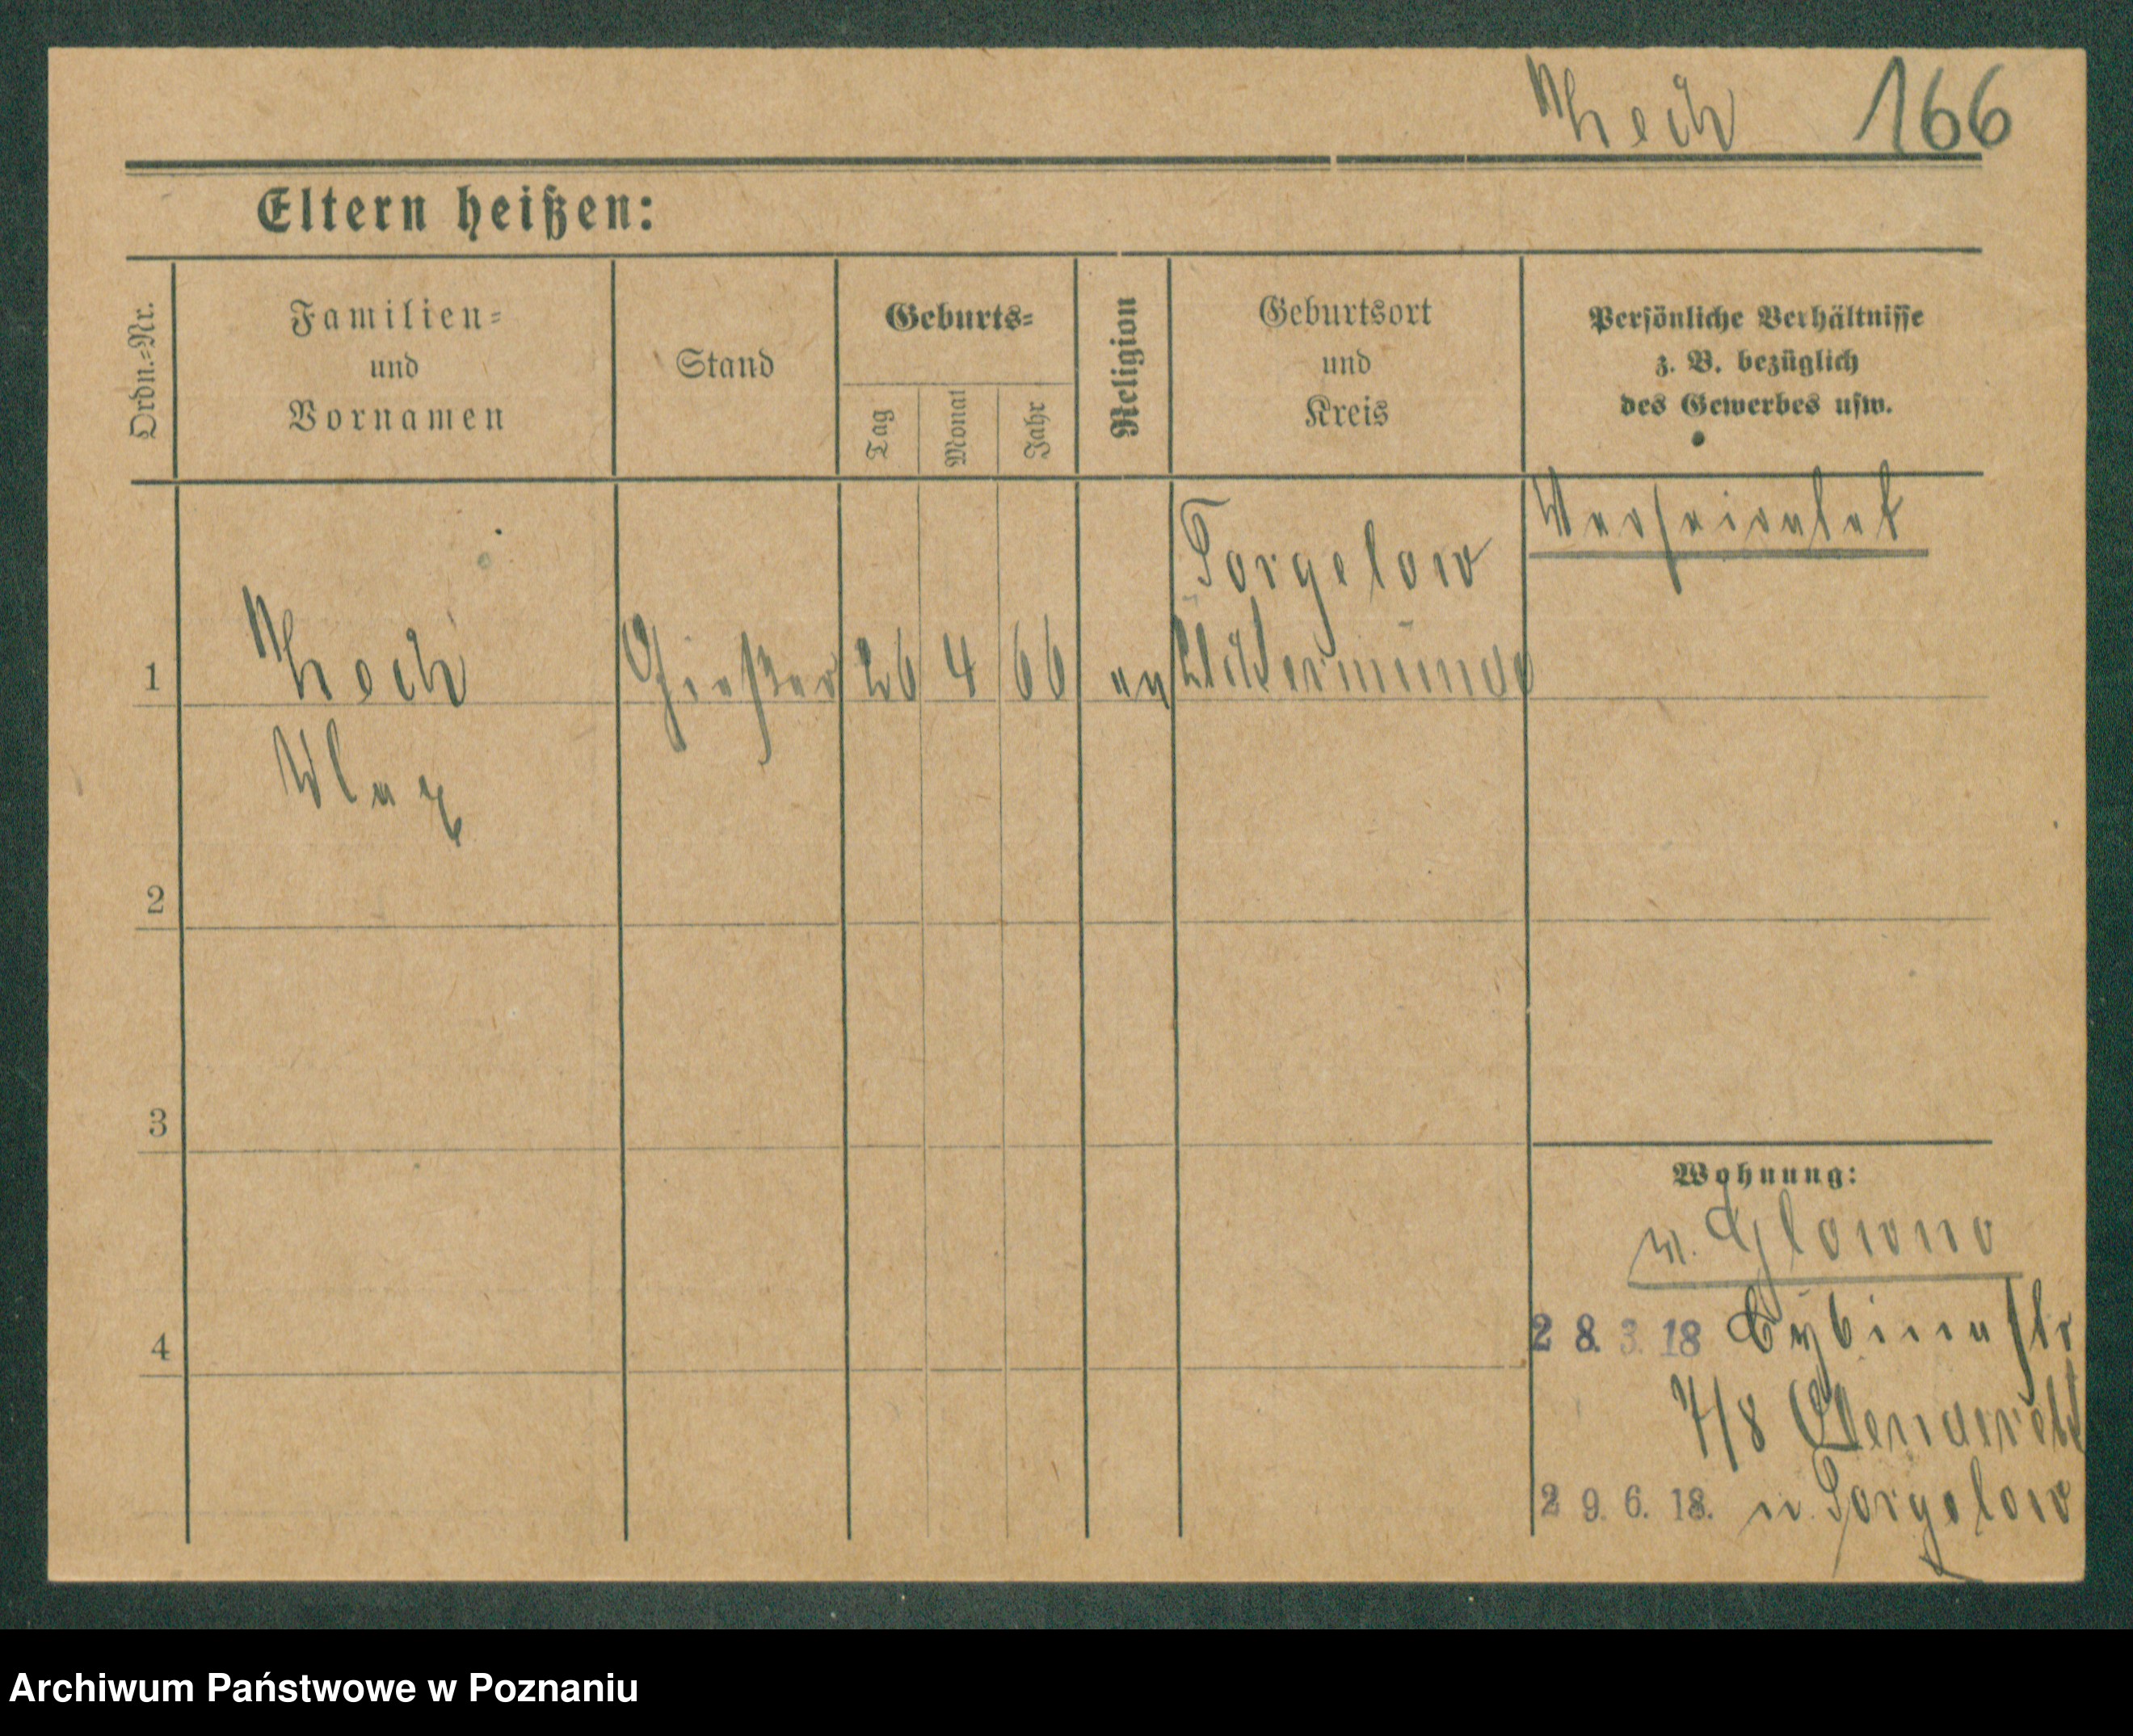 166
Eltern heißen:
Ordn.-Nr.
Familien-
und
Vornamen
Stand
Geburts-
Tag
Monat
Jahr
Religion
Geburtsort
und
Kreis
Persönliche Verhältnisse
z. B. bezüglich
des Gewerbes usw.
Verheiratet
Torgelow
1
Gießer
26
4
66
ev
Ückermünde
Max
2
3
Wohnung:
n. Glowno
4
28.3.18 Cybinastr
7/8
29.6.18. n. Torgelow
Archiwum Państwowe w Poznaniu